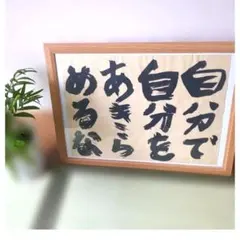 自分で
自分を
あきら
めるな